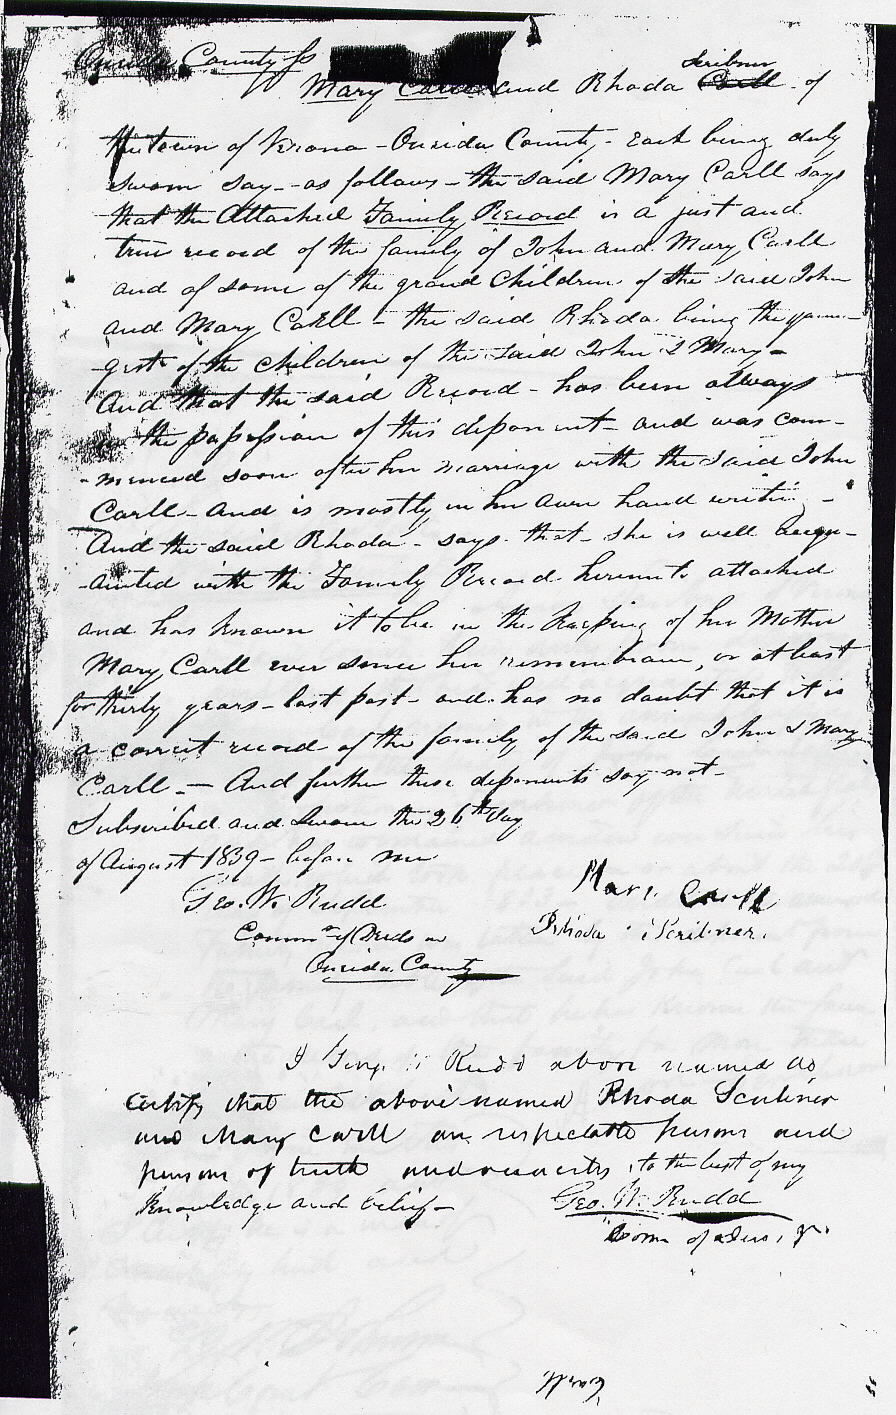 Oneida County ss
Scribner
Mary Carll and Rhoda Carll of
the town of Verona - Oneida County - Each being duly
sworn say - as follows - the said Mary Carll says
that the Attached Family Record is a just and
true record of the family of John and Mary Carll
and of some of the grand children of the said John
and Mary Carll - the said Rhoda being the youn-
gest of the children of the said John & Mary -
And that the said Record - has been always
in the possession of this deponent - and was com-
menced soon after her marriage with the said John
Carll - and is mostly in her own hand writing -
And the said Rhoda - says that - she is well acqu-
-ainted with the Family Record hereunto attached
and has known it to be in the keeping of her Mother
Mary Carll ever since her remembrance, or at least
for thirty years - last past - and has no doubt that it is
a correct record of the family of the said John & Mary
Carll - And further these deponents say not -
Subscribed and Sworn the 26th day
of August 1839 - before me
Geo. W. Rudd
Comm of Deeds in
Oneida County
Mary Carll
Rhoda Scribner
I Rudd above named do
certify that the above named Rhoda Scribner
and Mary Carll are respectable persons and
persons of truth and veracity, to the best of my
knowledge and belief -
Geo. W. Rudd
Comm of